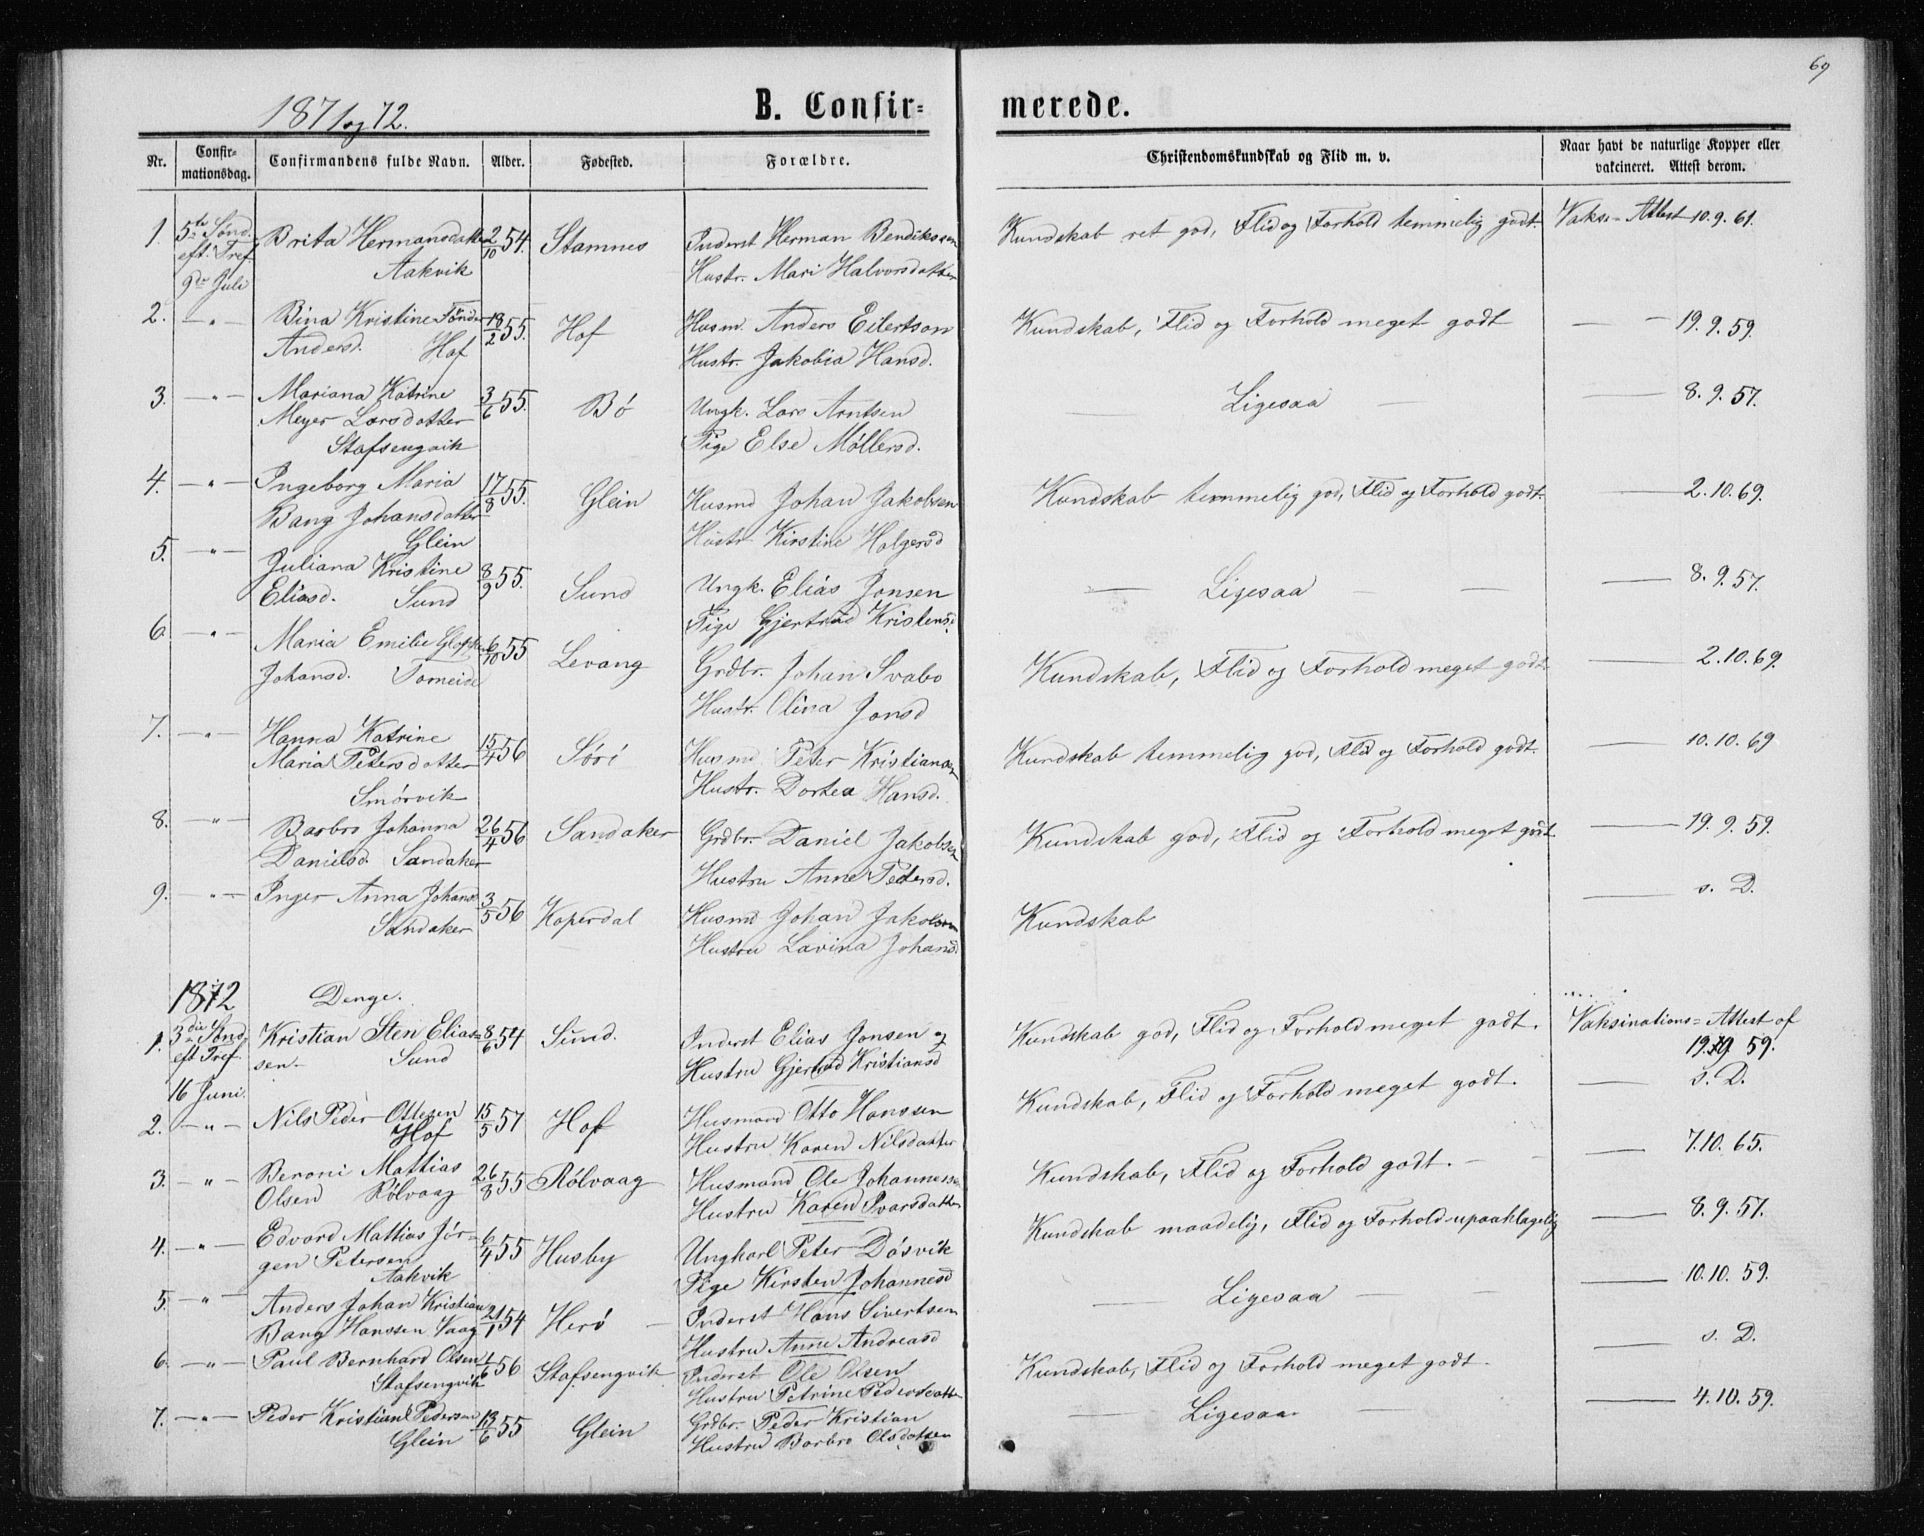 69
1871 og 72.
B. Confirmerede.
Nr. Confirmationsdag. Confirmandens fulde Navn. Alder. Fødested. Forældre. Christendomskundskab og Flid m. v. Naar havt de naturlige Kopper eller vakcineret. Attest derom.
1. 5te Sønd. Brita Hermansdatter 2/10 54. Stamnes Inderst Herman Bendiksen Kundskab ret god, Flid og Forhold temmelig godt. Vaks.- Attest 10.9.61.
eft. Tref. Aakvik Hustr. Mari Halvorsdatter
9de Juli
2. -"- Bina Kristine Tönder 18/2 55. Hof Husm. Anders Eilertson Kundskab, Flid og Forhold meget godt — 19.9.59.
Andersd. Hof Hustr. Jakobia Hansd.
3. -"- Mariana Katrine 3/6 55. Bö Ungk. Lars Arntsen — Ligesaa — 8.9.57.
Meyer Larsdatter Pige Else Möllersd.
Stafsengvik
4. -"- Ingeborg Maria 17/8 55. Glein Husmd Johan Jakobsen Kundskab temmelig god, Flid og Forhold godt. — 2.10.69.
Bang Johansdatter Hustr. Kirstine Holgersd
Glein
5. -"- Juliana Kristine 8/9 55. Sund Ungk. Elias Jonsen — Ligesaa — 8.9.57.
Eliasd. Sund Pige Gjertrud Kristensd.
6. -"- Maria Emilie 6/10 55 Levang Grdbr. Johan Svabo Kundskab, Flid og Forhold meget godt. — 2.10.69.
Johansd. Torneide Hustr. Olina Jonsd
7. -"- Hanna Katrine 15/4 56 Söri Husmd Peter Kristiansen Kundskab temmelig god, Flid og Forhold godt. — 10.10.69
Maria Petersdatter Hustr. Dortea Hansd.
Smörvik
8. -"- Barbro Johanna 26/4 56 Sandaker Grdbr. Daniel Jakobsen Kundskab god, Flid og Forhold meget godt — 19.9.59.
Danielsd. Sandaker Hustru Anne Pedersd.
9. -"- Inger Anna Johansd 3/5 56 Koperdal Husmd Johan Jakobsen Kundskab — s. D.
Sandaker Hustru Lavina Johansd.
1872 Drenge.
1. 3die Sönd. Kristian Sten Elias- 8/6 54 Sund. Inderst Elias Jonsen og Kundskab god, Flid og Forhold meget godt. Vaksinations- Attest af
eft Tref. sen. Sund Hustru Gjertrud Kristiansd 19.9 59.
16 Juni.
2. -"- Nils Peder Ottesen 15/5 57 Hof Husmand Otto Hanssen Kundskab, Flid og Forhold meget godt. — s. D.
Hof Hustru Karen Nilsdatter
3. -"- Beroni Mattias 26/8 55 Rölvaag Husmand Ole Johannessen Kundskab, Flid og Forhold godt. — 7.10.65.
Olsen Rölvaag Hustru Karen Ivarsdatter
4. -"- Edvard Mattias Jör- 6/4 55 Husby Ungkarl Peter Dösvik Kundskab maadelig, Flid og Forhold upaaklagelig — 8.9.57.
gen Petersen Pige Kirsten Johannesd
Aakvik
5. -"- Anders Johan Kristian 21/1 54 Herö Inderst Hans Sivertsen — Ligesaa — 10.10.59.
Bang Hanssen Vaag Hustru Anne Andreasd
6. -"- Paul Bernhard Olsen 1/6 56 Stafsengvik Inderst Ole Olsen Kundskab, Flid og Forhold meget godt. — s. D.
Stafsengvik Hustru Petrine Pedersdatter
7. -"- Peder Kristian Pedersen 13/6 55 Glein Grdbr. Peder Kristian — Ligesaa — 4.10.59.
Glein Hustru Barbro Olsdatter